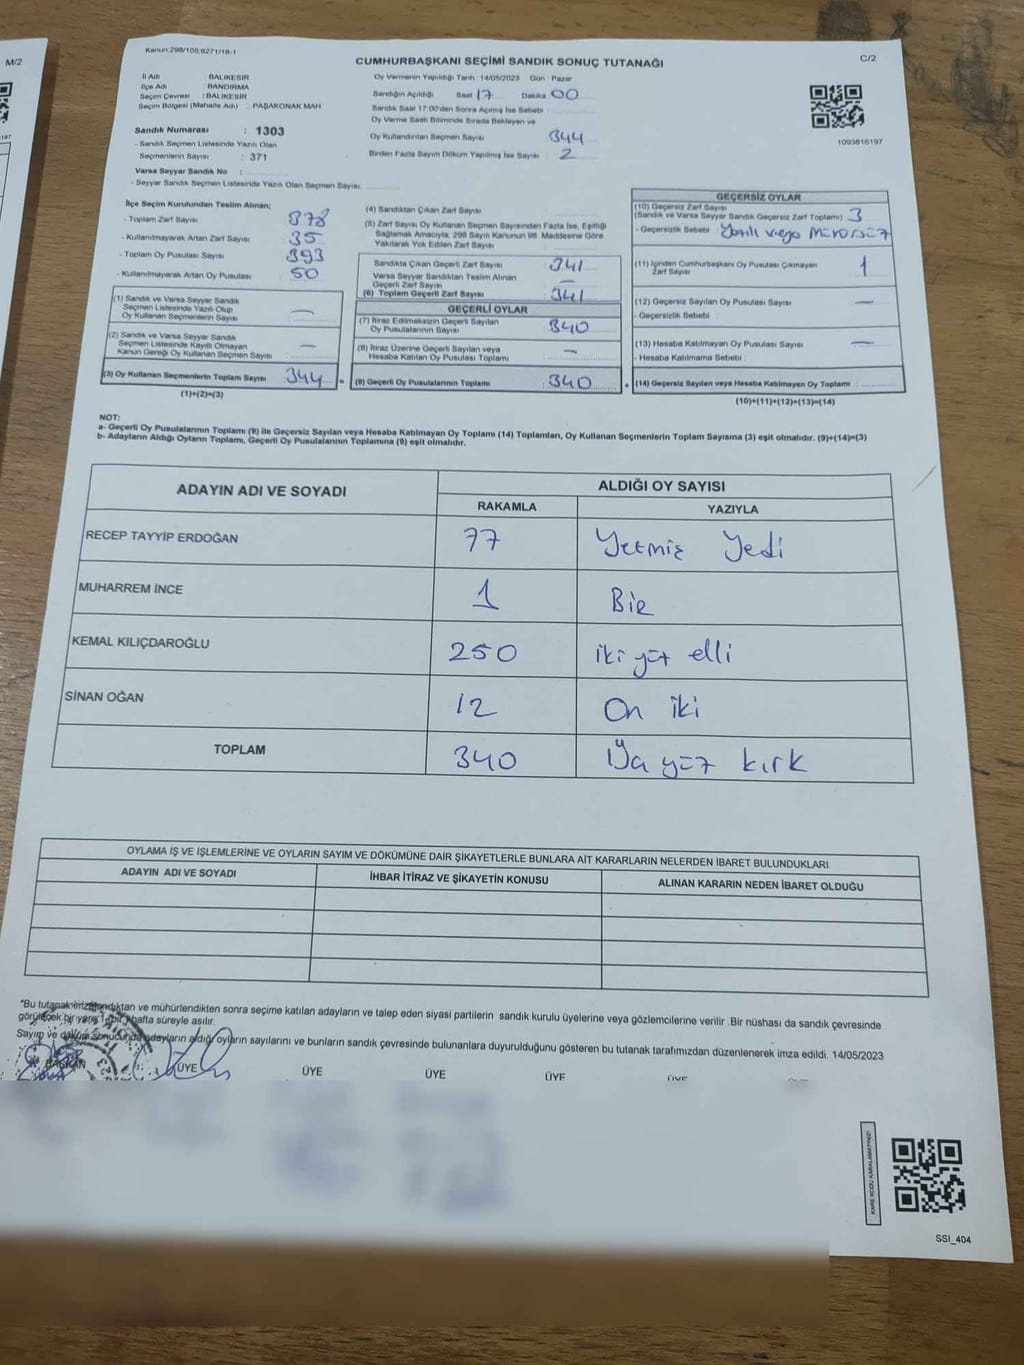 M/2
Kanun:298/105,6271/18-1
C/2
CUMHURBAŞKANI SEÇİMİ SANDIK SONUÇ TUTANAĞI
İl Adı : BALIKESİR
İlçe Adı : BANDIRMA
Seçim Çevresi : BALIKESİR
Seçim Bölgesi (Mahalle Adı) : PAŞAKONAK MAH
Sandık Numarası : 1303
- Sandık Seçmen Listesinde Yazılı Olan
Seçmenlerin Sayısı : 371
Varsa Seyyar Sandık No :
- Seyyar Sandık Seçmen Listesinde Yazılı Olan Seçmen Sayısı
Oy Vermenin Yapıldığı Tarih : 14/05/2023 Gün : Pazar
Sandığın Açıldığı Saat 17 Dakika 00
Sandık Saat 17:00'den Sonra Açılmış İse Sebebi
Oy Verme Saati Bitiminde Sırada Bekleyen ve
Oy Kullandırılan Seçmen Sayısı 344
Birden Fazla Sayım Döküm Yapılmış İse Sayısı : 2
1093816197
İlçe Seçim Kurulundan Teslim Alınan;
- Toplam Zarf Sayısı 378
- Kullanılmayarak Artan Zarf Sayısı 35
- Toplam Oy Pusulası Sayısı 393
- Kullanılmayarak Artan Oy Pusulası 50
(1) Sandık ve Varsa Seyyar Sandık
Seçmen Listesinde Yazılı Olup
Oy Kullanan Seçmenlerin Sayısı —
(2) Sandık ve Varsa Seyyar Sandık
Seçmen Listesinde Kayıtlı Olmayan
Kanun Gereği Oy Kullanan Seçmen Sayısı —
(3) Oy Kullanan Seçmenlerin Toplam Sayısı 344 =
(1)+(2)=(3)
(4) Sandıktan Çıkan Zarf Sayısı
(5) Zarf Sayısı Oy Kullanan Seçmen Sayısından Fazla İse, Eşitliği
Sağlamak Amacıyla, 298 Sayılı Kanunun 98. Maddesine Göre
Yakılarak Yok Edilen Zarf Sayısı
Sandıkta Çıkan Geçerli Zarf Sayısı 341
Varsa Seyyar Sandıktan Teslim Alınan
Geçerli Zarf Sayısı —
(6) Toplam Geçerli Zarf Sayısı 341
GEÇERLİ OYLAR
(7) İtiraz Edilmeksizin Geçerli Sayılan
Oy Pusulalarının Sayısı 340
(8) İtiraz Üzerine Geçerli Sayılan veya
Hesaba Katılan Oy Pusulası Toplamı —
(9) Geçerli Oy Pusulalarının Toplamı 340 +
GEÇERSİZ OYLAR
(10) Geçersiz Zarf Sayısı
(Sandık ve Varsa Seyyar Sandık Geçersiz Zarf Toplamı) 3
- Geçersizlik Sebebi : Yazılı veya Mühürsüz
(11) İçinden Cumhurbaşkanı Oy Pusulası Çıkmayan
Zarf Sayısı 1
(12) Geçersiz Sayılan Oy Pusulası Sayısı —
- Geçersizlik Sebebi :
(13) Hesaba Katılmayan Oy Pusulası Sayısı —
- Hesaba Katılmama Sebebi :
(14) Geçersiz Sayılan veya Hesaba Katılmayan Oy Toplamı
(10)+(11)+(12)+(13)=(14)
NOT:
a- Geçerli Oy Pusulalarının Toplamı (9) ile Geçersiz Sayılan veya Hesaba Katılmayan Oy Toplamı (14) Toplamları, Oy Kullanan Seçmenlerin Toplam Sayısına (3) eşit olmalıdır. (9)+(14)=(3)
b- Adayların Aldığı Oyların Toplamı, Geçerli Oy Pusulalarının Toplamına (9) eşit olmalıdır.
ADAYIN ADI VE SOYADI
ALDIĞI OY SAYISI
RAKAMLA YAZIYLA
RECEP TAYYİP ERDOĞAN 77 Yetmiş Yedi
MUHARREM İNCE 1 Bir
KEMAL KILIÇDAROĞLU 250 iki yüz elli
SİNAN OĞAN 12 On iki
TOPLAM 340 yüz kırk
OYLAMA İŞ VE İŞLEMLERİNE VE OYLARIN SAYIM VE DÖKÜMÜNE DAİR ŞİKAYETLERLE BUNLARA AİT KARARLARIN NELERDEN İBARET BULUNDUKLARI
ADAYIN ADI VE SOYADI İHBAR İTİRAZ VE ŞİKAYETİN KONUSU ALINAN KARARIN NEDEN İBARET OLDUĞU
*Bu tutanak imzalandıktan ve mühürlendikten sonra seçime katılan adayların ve talep eden siyasi partilerin sandık kurulu üyelerine veya gözlemcilerine verilir .Bir nüshası da sandık çevresinde
görülecek bir yere 1 (bir) hafta süreyle asılır.
Sayım ve döküm sonucunda adayların aldığı oyların sayılarını ve bunların sandık çevresinde bulunanlara duyurulduğunu gösteren bu tutanak tarafımızdan düzenlenerek imza edildi. 14/05/2023
BAŞKAN ÜYE ÜYE ÜYE ÜYE ÜYE
KARE KODU KARALAMAYINIZ!
SSI_404